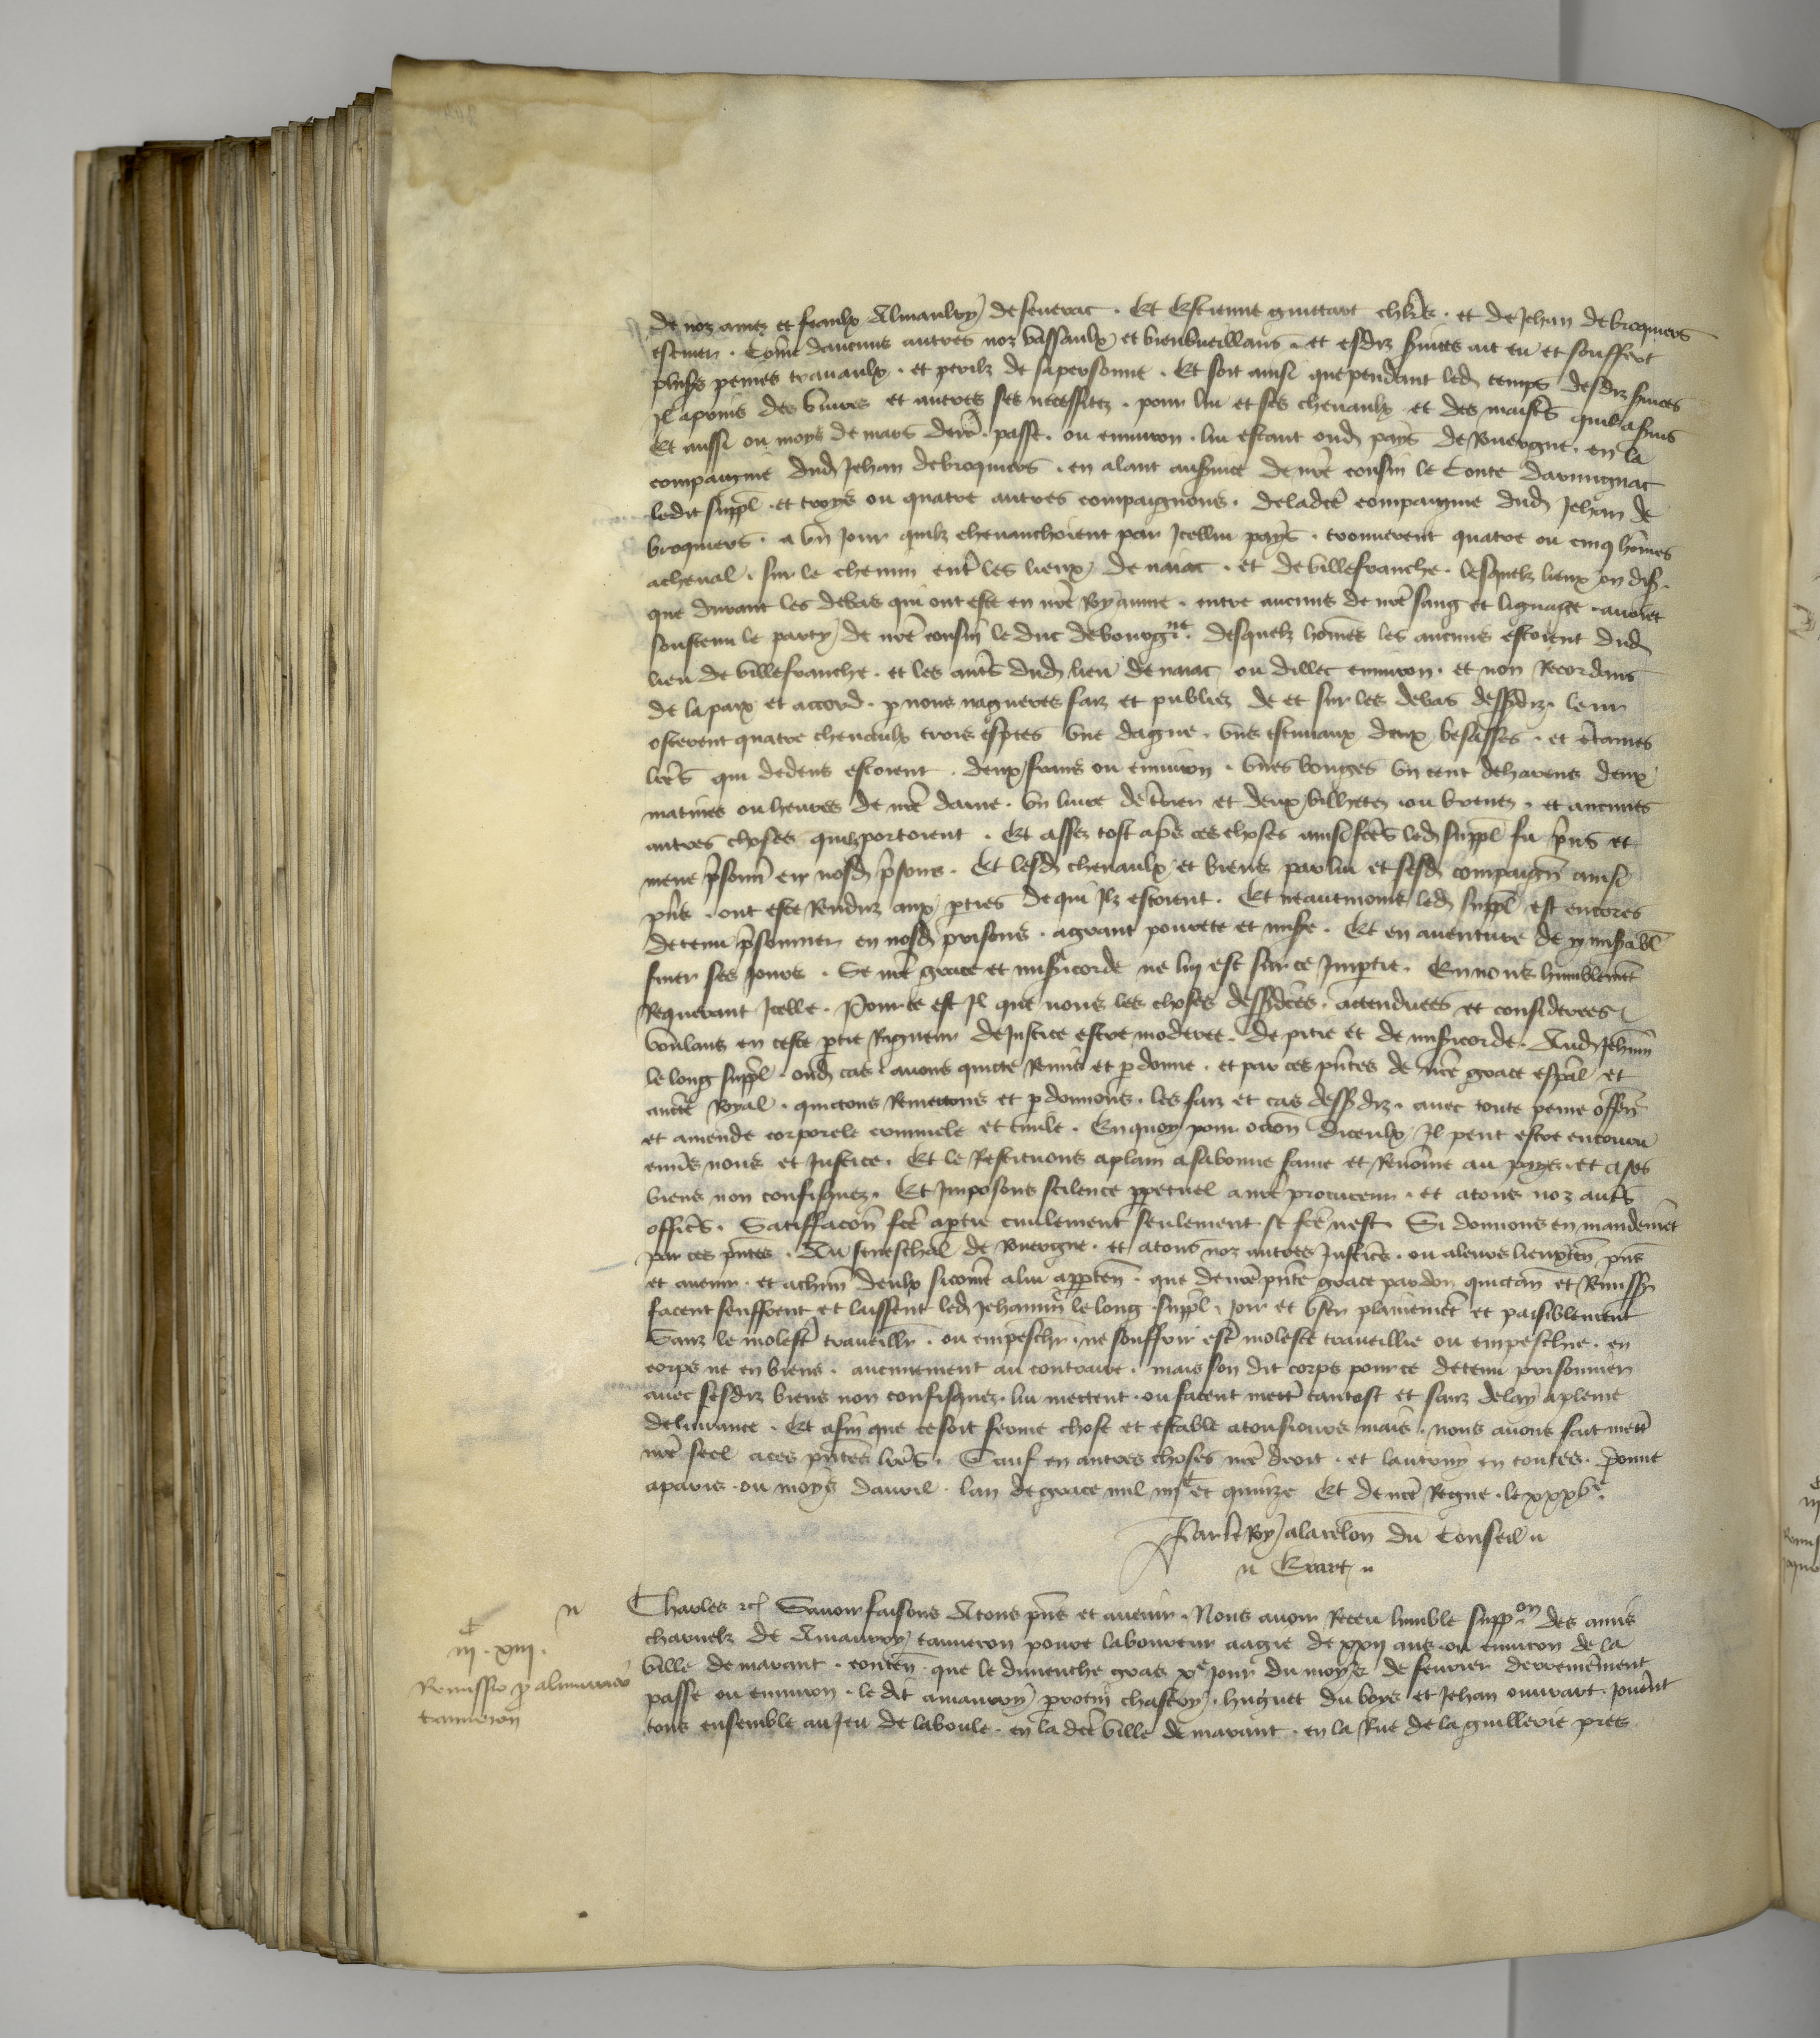 de noz amez et feaulx Almaulry de severac . Et Estienne guittart chlrs . et de Jehan de broquiers
escuier . Cõme daucuns autres noz vassaulx et bienvueillans . et esdiz s̃uices ait eu et souffert
plus̃rs peines travaulx . et perilz de sa personne . Et soit ainsi que pendant led temps desdiz s̃uices
Il a prins des vivres et autres ses necessitez . pour lui et ses chevaulx et des maist̃s quil a s̃uis
Et aussi ou moys de mars derr̃ . passe . ou environ . lui estant oud pays de Rouergue . en la
compaignie dud Jehan de broquiers . en alant au s̃uice de nr̃e cousin le Conte darmignac
ledit suppl̃ . et troys ou quatre autres compaignons . de ladcẽ compaignie dud Jehan de
broquiers . a un jour quilz chevauchoient par Icellui pays . trouverent quatre ou cinq hõmes
a cheval . sur le chemin ent̃ les lieux de naiac . et de villefranche . lesquelz lieux on dis̃ .
que durant les debas qui ont este en nr̃e Royaume . entre aucuns de nr̃e sang et lignage . avoiẽt
soustenu le party de nr̃e cousin le duc de bourgne . desquelz hõmes les aucuns estoient dud
lieu de villefranche . et les aut̃s dud lieu de naiac ou dillec environ . et non Recordans
de la paix et accord . p nous nagueres faiz et publiez de et sur les debas dess̃diz . leur
osterent quatre chevaulx trois espees une dague . uns estivaux deux besasses . et c̃taines
lr̃es qui dedens estoient . deux frans ou environ . unes bouges un cent de harens deux
matines ou heures de nr̃e dame . un livre de et deux billhetes ou brevez . et aucunes
autres choses quilz portoient . Et assez tost ap̃s ces choses ainsi fcẽs led suppl̃ fu p̃ns et
mene p̃sonñ en nosd p̃sons . Et lesd chevaulx et biens par lui et sesd compaigñ ainsi
pñs . ont este Renduz aux pties de qui Ilz estoient . Et neantmoins led suppl̃ est encores
detenu p̃sonnier en nosd prisons . a grant povrete et mis̃e . Et en aventure de y mis̃abl̃
finer ses jours . Se nr̃e grace et mis̃icorde ne lui est sur ce Imptie . En nous humblemẽt
Requerant Icelle . Pour ce est Il que nous les choses dess̃dcẽs . attendues et considerees
voulans en ceste ptie Rigueur de Justice estre moderee . de pitie et de mis̃icorde . Aud Jehañ
le long suppl̃ . oud cas . avons quicte Remis et pdonne . et par ces pñtes de nr̃e grace esp̃al et
auctẽ Royal . quictons Remettons et pdonnons . les faiz et cas dess̃diz . avec toute peine offeñ
et amende corporele criminele et civile . En quoy pour occoñ diceulx Il peut estre encouru
enṽs nous et Justice . Et le Restituons a plain a sa bonne fame et Renõme au pays . et a ses
biens non confisquez . Et Imposons scilence ppetuel a nr̃e procureur . et a tous noz aut̃s
offic̃s . Satiffacoñ fcẽ a ptie civilement seulement se fcẽ nest . Si donnons en mandemẽt
par ces pñtes . Au seneschal de Rouergue . et a tous noz autres Justic̃s . ou a leurs lieuxteñ pñs
et avenir . et a chũn deulx sicom̃e a lui apparteñ . que de nr̃e pñte grace pardon quictañ et Remissñ
facent seuffrent et laissent led Jehanniñ le long suppl̃ . joir et us̃er plainemẽt et paisiblement
Sanz le molest̃ traveillr̃ . ou empeschr̃ . ne souffrir est̃ moleste traveillie ou empeschie . en
corps ne en biens . aucunement au contraire . mais son dit corps pour ce detenu prisonnier
avec sesdiz biens non confisquez . lui mettent . ou facent mett̃ tantost et sanz delay a pleine
delivrance . Et afin que ce soit ferme chose et estable a tousiours mais . nous avons fait mett̃
nr̃e seel a ces pñtes lr̃es . Sauf en autres choses nr̃e droit . et lautruy en toutes . Donne
a paris . ou moys davril . lan de grace mil iiijc et quinze Et de nr̃e Regne . le xxxve .
Par le Roy a la rel̃on du Conseil
Erart
Charles etc̃ Savoir faisons A tous pñs et avenir . Nous avoir Receu humble suppon des amis
charnelz de Amaurry tanneron povre laboureur aagie de xxij ans ou environ de la
ville de marant . conteñ . que le dimenche gras xe jour du moys de fevrier derrenierement
passe ou environ . le dit amaurry perotiñ chastry . huguet du boys et Jehan ouvrart . jouer̃nt
tous ensemble au Jeu de la boule . en la dcẽ ville de marant . en la Rue de la guillerie pres
iijc . xiij .
Remissio p almaurico
tanneron